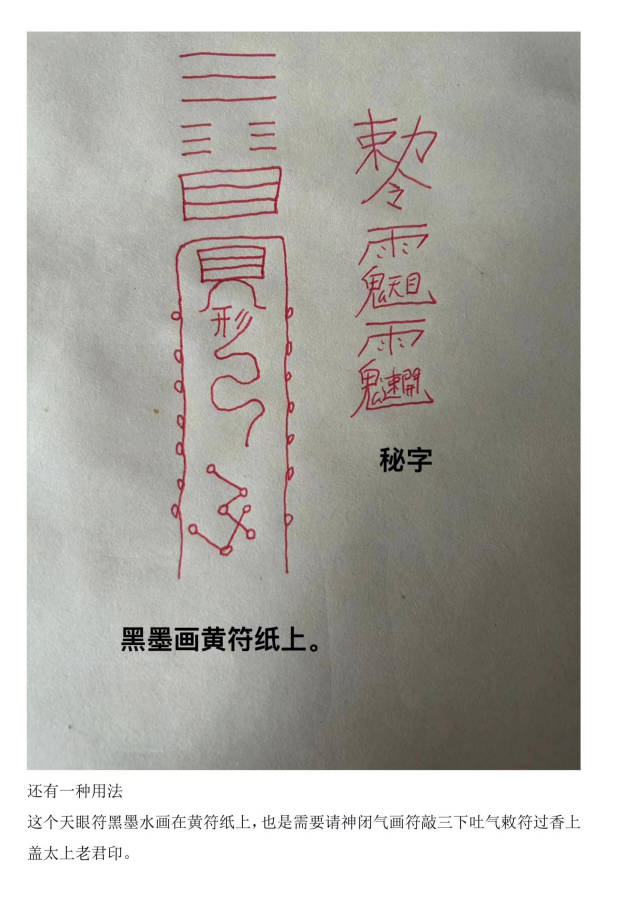 形
勅
令
秘字
黑墨画黄符纸上。
还有一种用法
这个天眼符黑墨水画在黄符纸上，也是需要请神闭气画符敲三下吐气敕符过香上
盖太上老君印。